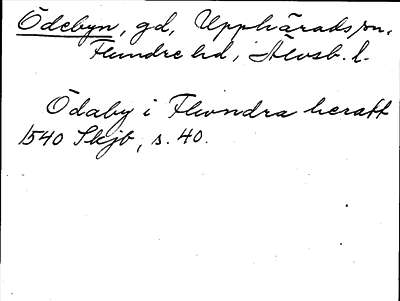 Ödebyn, gd, Upphärads sn,
Flundre hd, Älvsb. l.
Ödaby i Flundra heratt
1540 Skjb, s. 40.